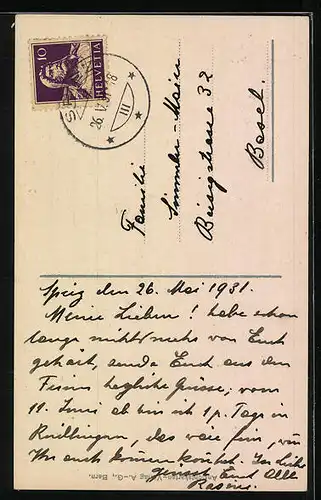 10
HELVETIA
26. V. 31
III
Familie
Simmler-Main
Basel.
Spiez den 26. Mai 1931.
Meine Lieben! habe schon
lange nichts mehr von Euch
gehört, sende Euch aus den
Ferien herzliche Grüsse, vom
11. Juni ab bin ich p. Tage in
das wäre fein, wenn
Ihr auch kommen könntet. In Liebe
grüsst Euch Alle